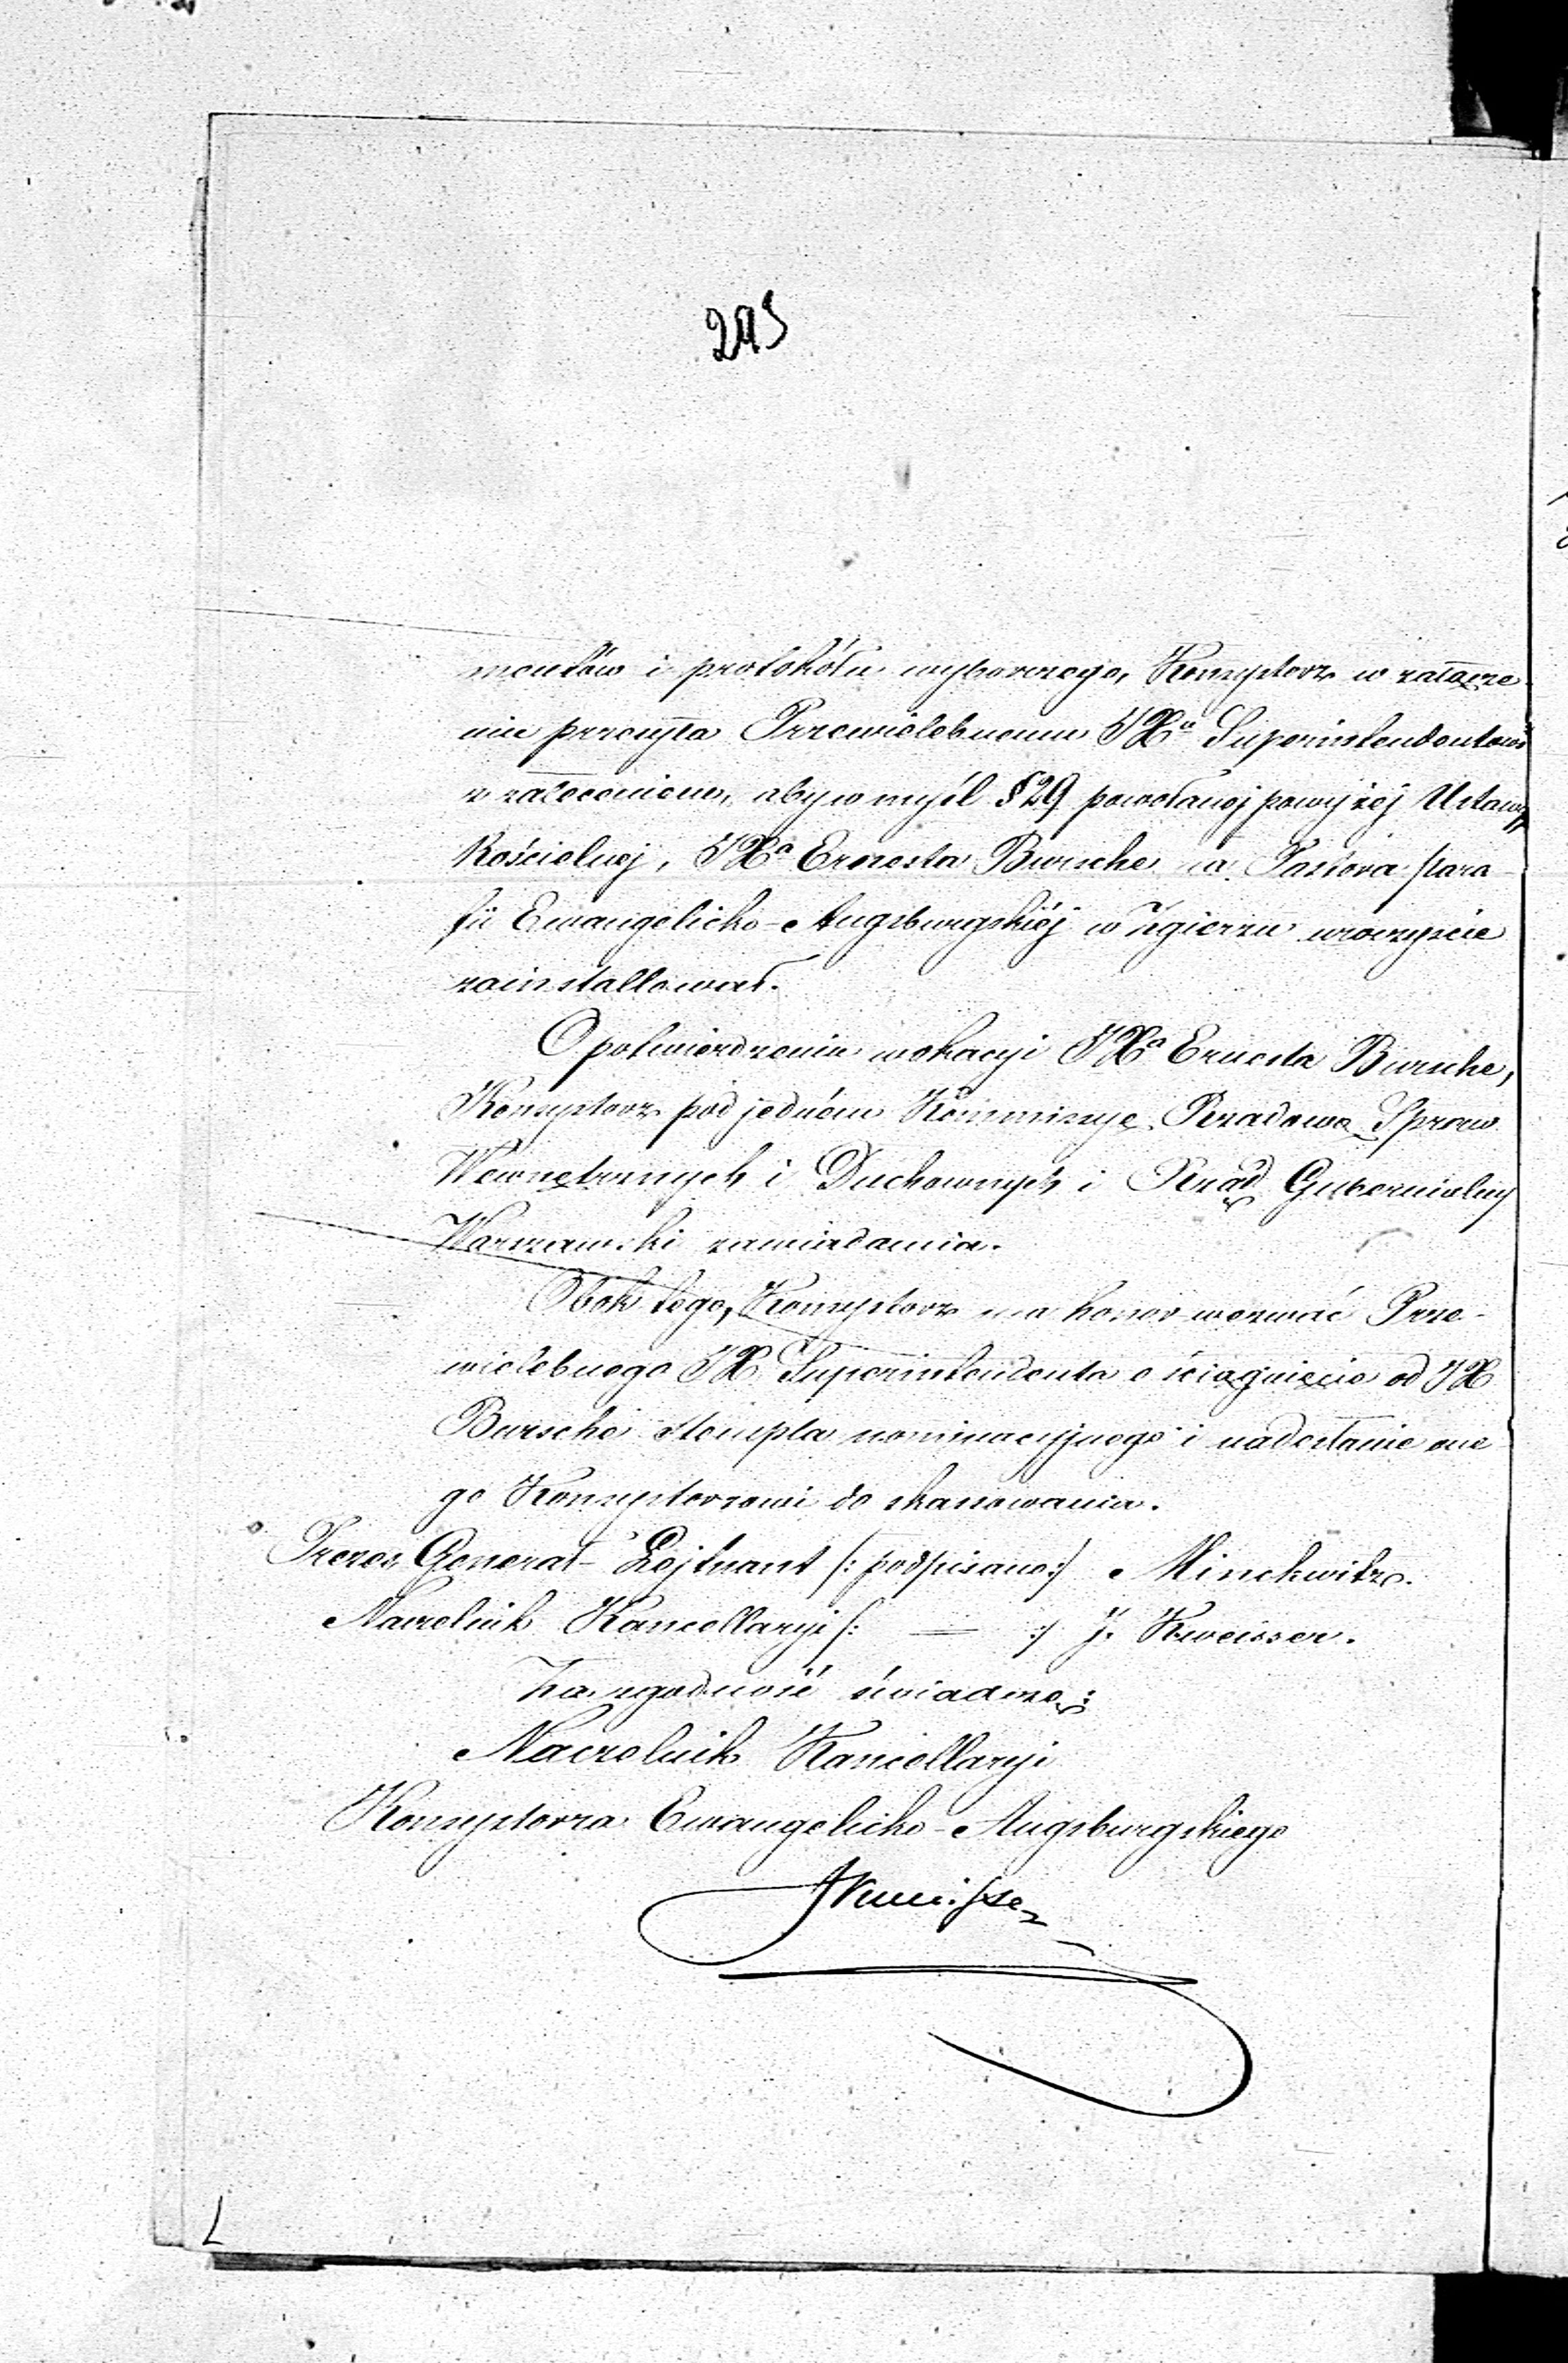 295
mentów i protokółu wyborczego, Konsystorz w załącze-
niu przesyła Przewielebnemu JXu Superintendentowi
z zaleceniem, aby w myśl § 29 powołanej powyżej Ustawy
Kościelnej, JXa Ernesta Bursche na Pastora para-
fii Ewangelicko-Augsburgskiéj w Zgierzu uroczyście
zainstallował.
O potwierdzeniu wokacyi JXa Ernesta Bursche,
Konsystorz pod jedném Kommissyę Rządową Spraw
Wewnętrznych i Duchownych i Rząd Gubernialny
Warszawski zawiadamia.
Obok tego, Konsystorz ma honor wezwać Prze-
wielebnego JX Superintendenta o ściągnięcie od JX
Bursche stempla nominacyjnego i nadesłanie one-
go Konsystorzowi do skassowania.
Prezes, Generał-Lejtnant /: podpisano :/ Minckwitz.
Naczelnik Kancellaryi /: — :/ J. Kweisser.
Za zgodność świadczę:
Naczelnik Kancellaryi
Konsystorza Ewangelicko-Augsburgskiego
JKweisser